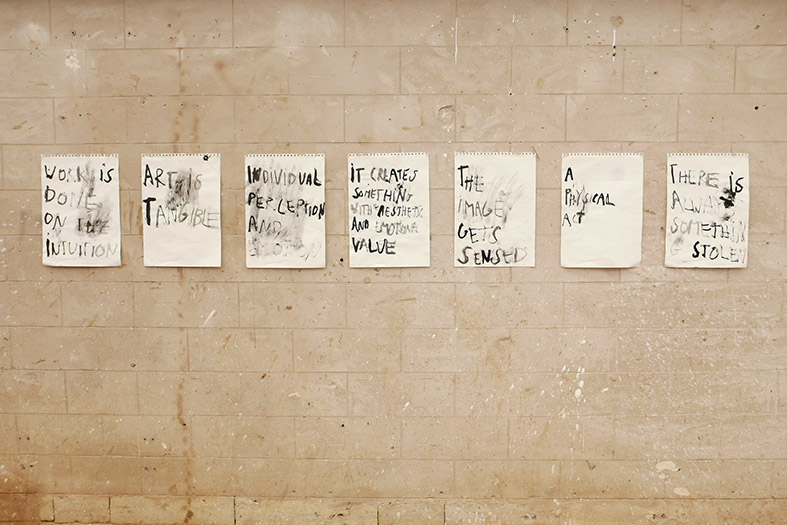 WORK IS
DONE
ON THE
INTUITION
ART IS
TANGIBLE
INDIVIDUAL
PERCEPTION
AND
IT CREATES
SOMETHING
WITH AESTHETIC
AND EMOTIONAL
VALUE
THE
IMAGE
GETS
SENSED
A
PHYSICAL
ACT
THERE IS
ALWAYS
SOMETHING
STOLEN